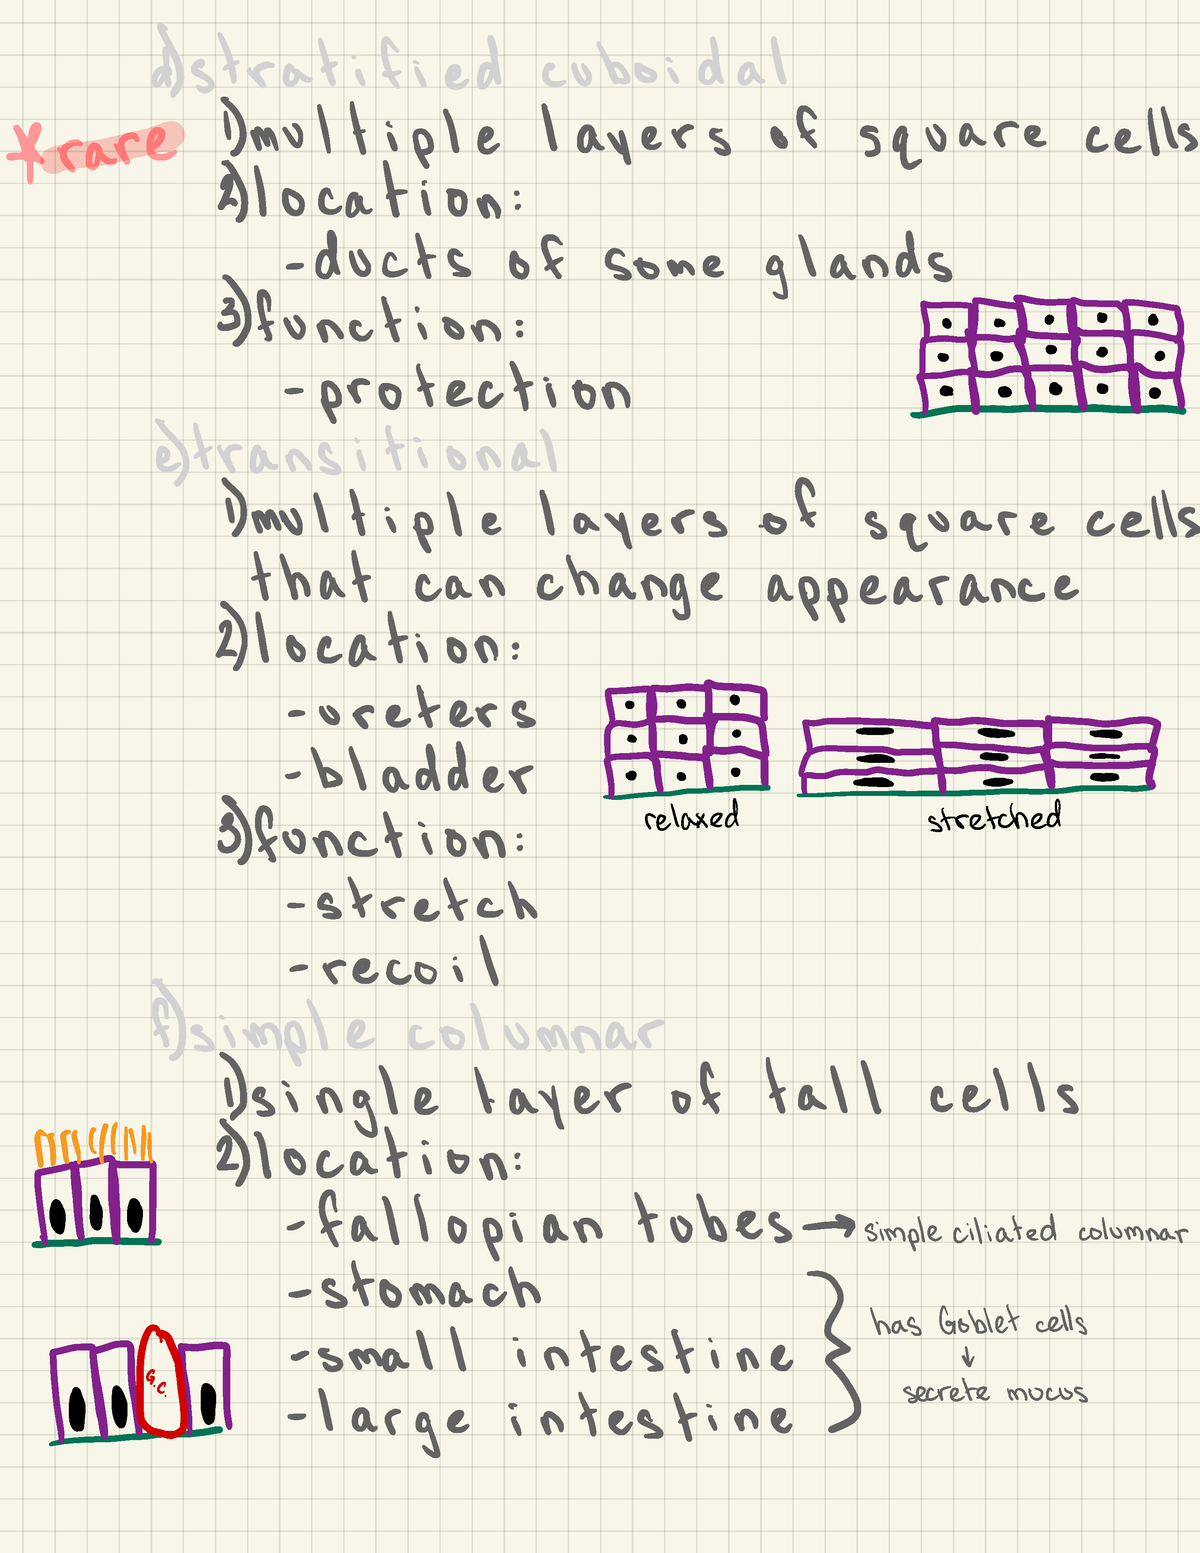 d) stratified cuboidal
*rare
1) multiple layers of square cells
2) location:
- ducts of some glands
3) function:
- protection
e) transitional
1) multiple layers of square cells
that can change appearance
2) location:
- ureters
- bladder
relaxed
stretched
3) function:
- stretch
- recoil
f) simple columnar
1) single layer of tall cells
2) location:
- fallopian tubes → simple ciliated columnar
- stomach
- small intestine
- large intestine
has Goblet cells
↓
secrete mucus
G.C.